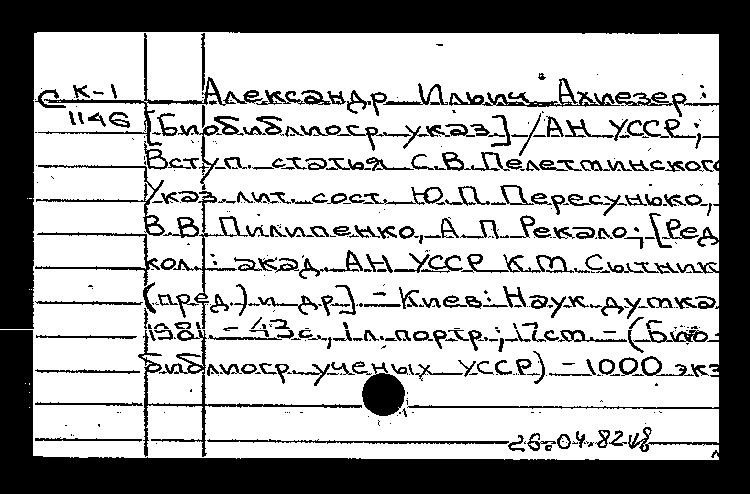 С К-1 Александр Ильич Ахиезер:
1146 [Биобиблиогр. указ.] / АН УССР;
Вступ. статья С.В. Пелетминского
Указ. лит. сост. Ю.П. Пересунько,
В.В. Пилипенко, А.П. Рекало; [Ред
кол.: акад. АН УССР К.М. Сытник
(пред.) и др.] - Киев: Наук. думка
1981. - 43 с., 1 л. портр.; 17 см. - (Био-
библиогр. ученых УССР) - 1000 экз
26.04.82